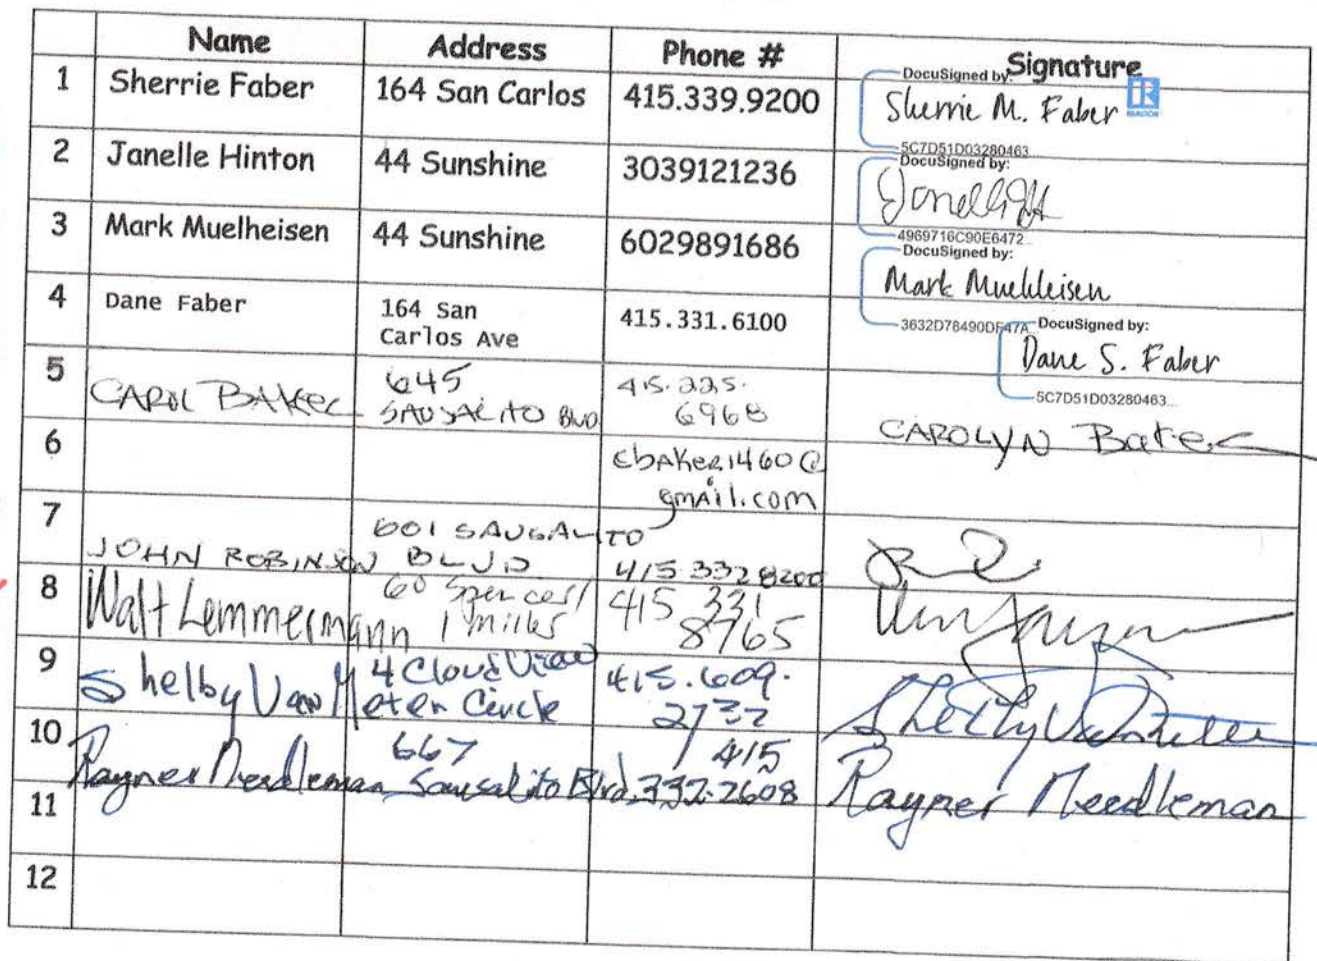 Name Address Phone # Signature
1 Sherrie Faber 164 San Carlos 415.339.9200
DocuSigned by:
Sherrie M. Faber
REALTOR
5C7D51D03280463...
2 Janelle Hinton 44 Sunshine 3039121236
DocuSigned by:
4969716C90E6472...
3 Mark Muelheisen 44 Sunshine 6029891686
DocuSigned by:
Mark Muehleisen
3632D78490DF47A...
4 Dane Faber 164 San 415.331.6100
Carlos Ave
DocuSigned by:
Dane S. Faber
5C7D51D03280463...
5 CAROL BAKER 645 415.225.
SAUSALITO BLVD 6968
CAROLYN Baker
6 cbaker1460@
gmail.com
7 601 SAUSALITO
JOHN ROBINSON BLVD 415 332 8200
8 Walt Lemmermann 60 Spencer / 415 331
1 miller 8765
9 Shelby Van Meter 4 Cloud View 415.609.
Circle 2732
Shelby Van Meter
10 667 415
Rayner Needleman Sausalito Blvd. 332-2608 Rayner Needleman
11
12